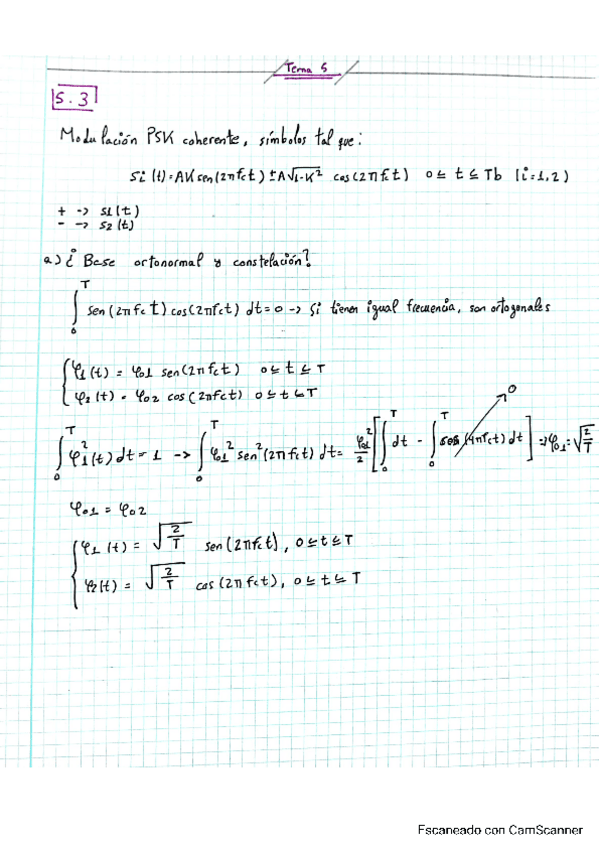 Tema 5
5.3
Modulación PSK coherente, símbolos tal que:
Si(t)=AK sen(2πfct) ± A√1-K² cos(2πfct) 0≤t≤Tb (i=1,2)
+ -> S1(t)
- -> S2(t)
a) ¿Base ortonormal y constelación?
∫₀ᵀ sen(2πfct)cos(2πfct) dt=0 -> Si tienen igual frecuencia, son ortogonales
φ1(t) = φ01 sen(2πfct) 0≤t≤T
φ2(t) = φ02 cos(2πfct) 0≤t≤T
∫₀ᵀ φ1²(t)dt=1 -> ∫₀ᵀ φ01² sen²(2πfct) dt= φ01²/2 [∫₀ᵀ dt - ∫₀ᵀ cos(4πfct)dt] => φ01=√2/T
0
φ01 = φ02
φ1(t) = √2/T sen(2πfct), 0≤t≤T
φ2(t) = √2/T cos(2πfct), 0≤t≤T
Escaneado con CamScanner